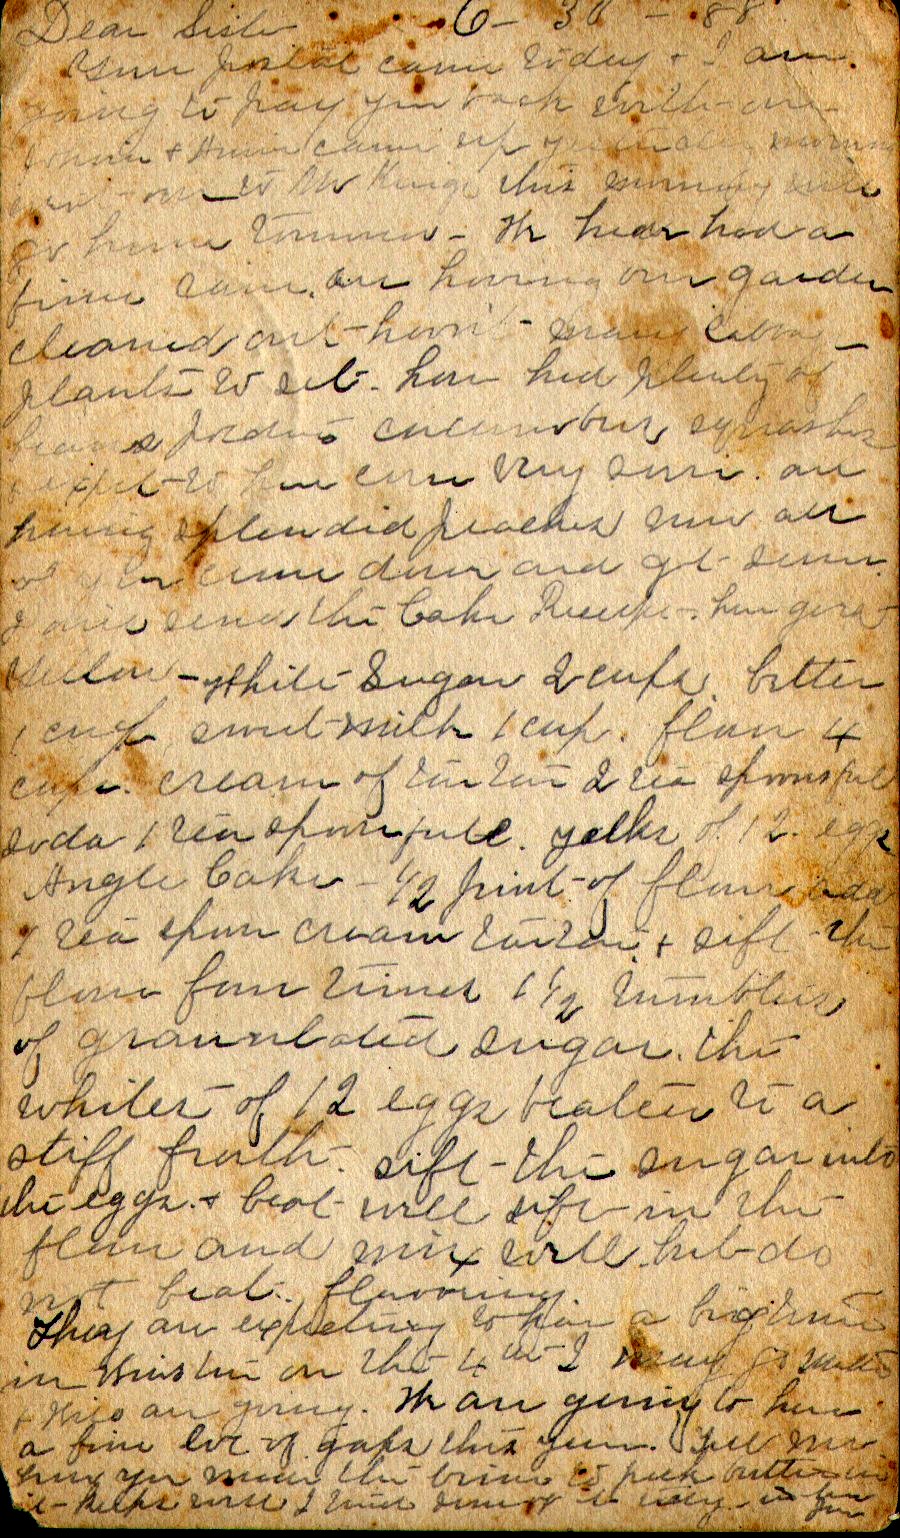 Dear Sister 6 - 30 - 88
Your postal came today & I am
going to pay you back with one
& Annie came up yesterday morning
went on to Mr Kings this morning will
go home tomorrow - We have had a
fine rain. are having our garden
cleaned out - havn't
plants to set. have had plenty of
beans potatoes cucumbers squashes
& expect to have corn very soon. are
having splendid peaches now all
of you come down and get some.
I will send the Cake Receipt -
Yellow - White Sugar 2 cups. butter
1 cup sweet milk 1 cup. flour 4
cups. cream of tartar 2 tea spoonsfull
soda 1 tea spoonfull. yolks of 12 eggs
Angle Cake - 1/2 pint of flour add
1 tea spoon cream tartar & sift the
flour four times 1 1/2 tumblers
of granulated sugar. the
whites of 12 eggs beaten to a
stiff froth. sift the sugar into
the eggs. & beat well sift in the
flour and mix well but do
not beat. flavoring.
They are expecting to have a big time
in on the 4th I may go
& are going. We are going to have
a fine lot of this year.
you the brine to pack butter in
it keeps well I